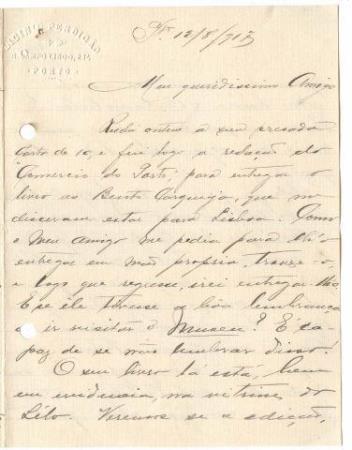 PERDIGÃO
PORTO
12/8/917
Meu queridissimo Amigo
Recebi ontem a sua presada
carta de 10, e fui logo a redação do
"Comercio do Porto", para entregar o
livro ao Bento Carqueja, que me
disseram estar para Lisboa. Como
o meu amigo me pedia para lh'o
entregar em mão propria, trouxe-o,
e logo que regresse, irei entregar-lh'o.
E se ele tivesse a bôa lembrança
de ir visitar o Museu? E ca-
paz de se não lembrar disso!
O seu livro lá está, bem
em evidencia, na vitrine do
Lélo. Veremos se a edição,